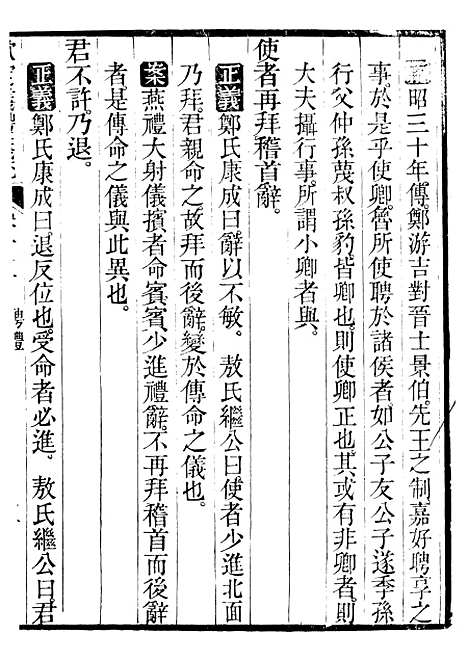 昭三十年傳鄭游吉對晉士景伯。先王之制嘉好聘享之
事於是乎使卿。魯所使聘於諸侯者如公子友公子遂季孫
行父仲孫蔑叔孫豹。皆卿也。則使卿正也。其或有非卿者。則
大夫攝行事。所謂小卿者與。
使者再拜稽首辭。
正義鄭氏康成曰辭以不敏。 敖氏繼公曰使者少進北面
乃拜。君親命之。故拜而後辭。變於傳命之儀也。
案燕禮大射儀擯者命賓賓少進禮辭。不再拜稽首而後辭
者是傳命之儀與此異也。
君不許。乃退。
正義鄭氏康成曰退反位也。受命者必進。 敖氏繼公曰君
聘禮